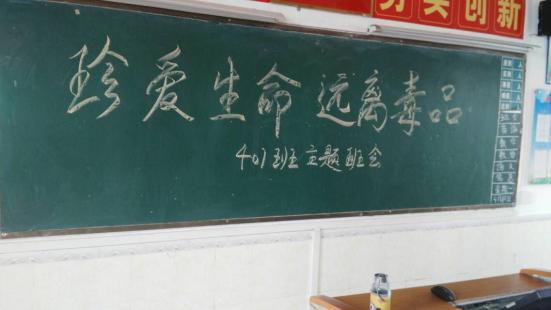 务实创新
珍爱生命 远离毒品
401班主题班会